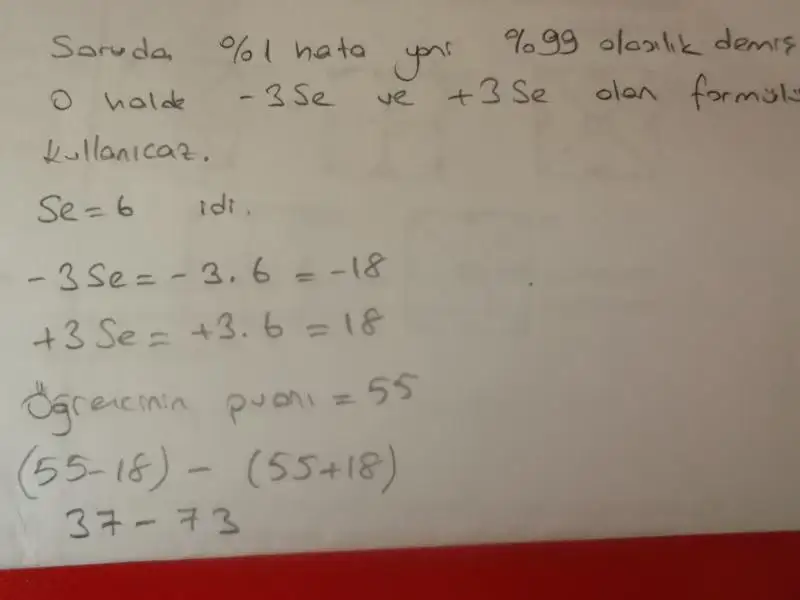 Soruda %1 hata yani %99 olasılık demiş
O halde -3Se ve +3Se olan formülü
kullanıcaz.
Se = 6 idi.
-3Se = -3.6 = -18
+3Se = +3.6 = 18
Öğrencinin puanı = 55
(55-18) - (55+18)
37 - 73